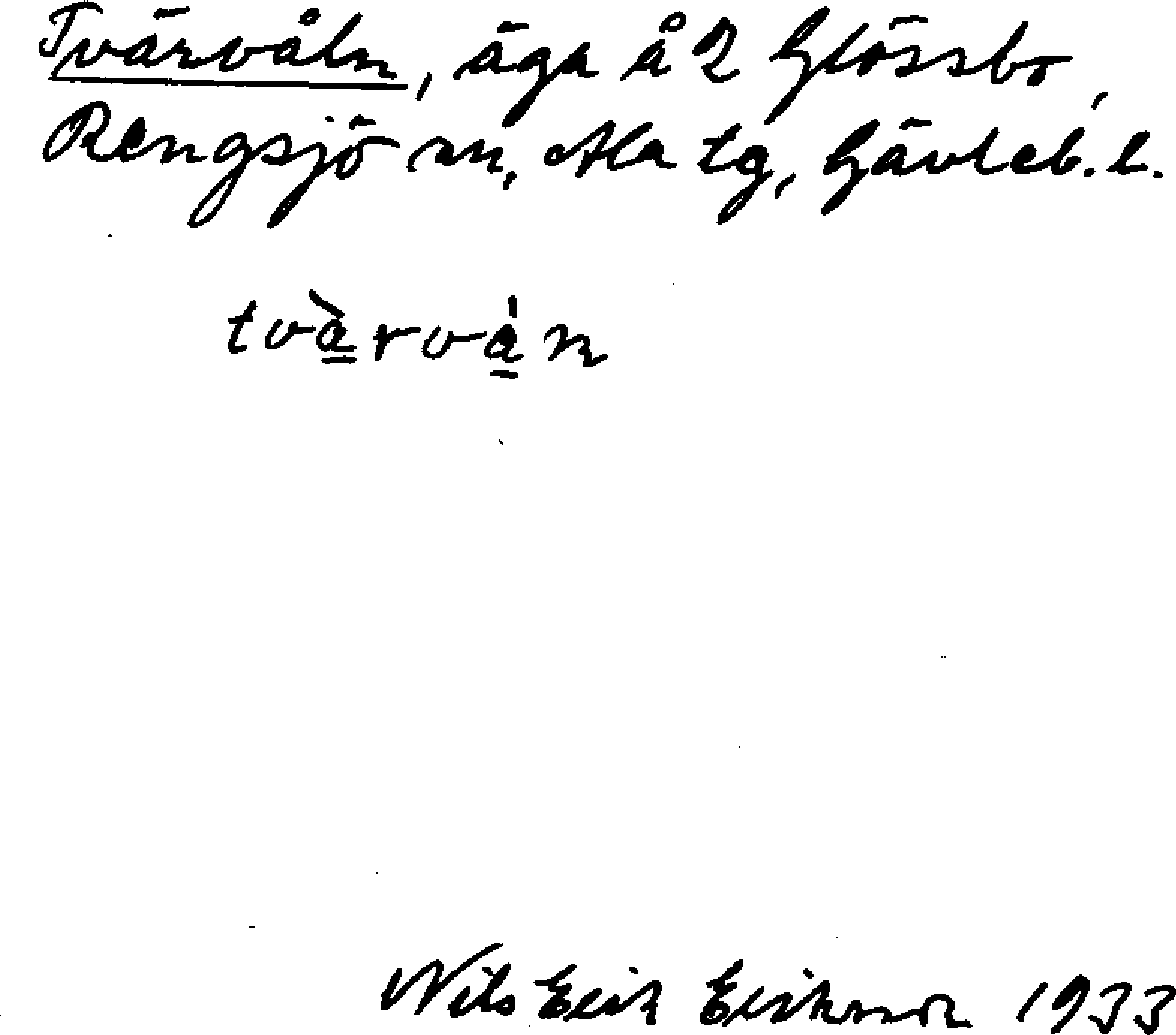 Tvärvåln, äga å 2 Glössbo,
Rengsjö sn, Ala tg, Gävleb. l.
tvà̲rvȧ̲n
Nils Erik Eriksson 1933